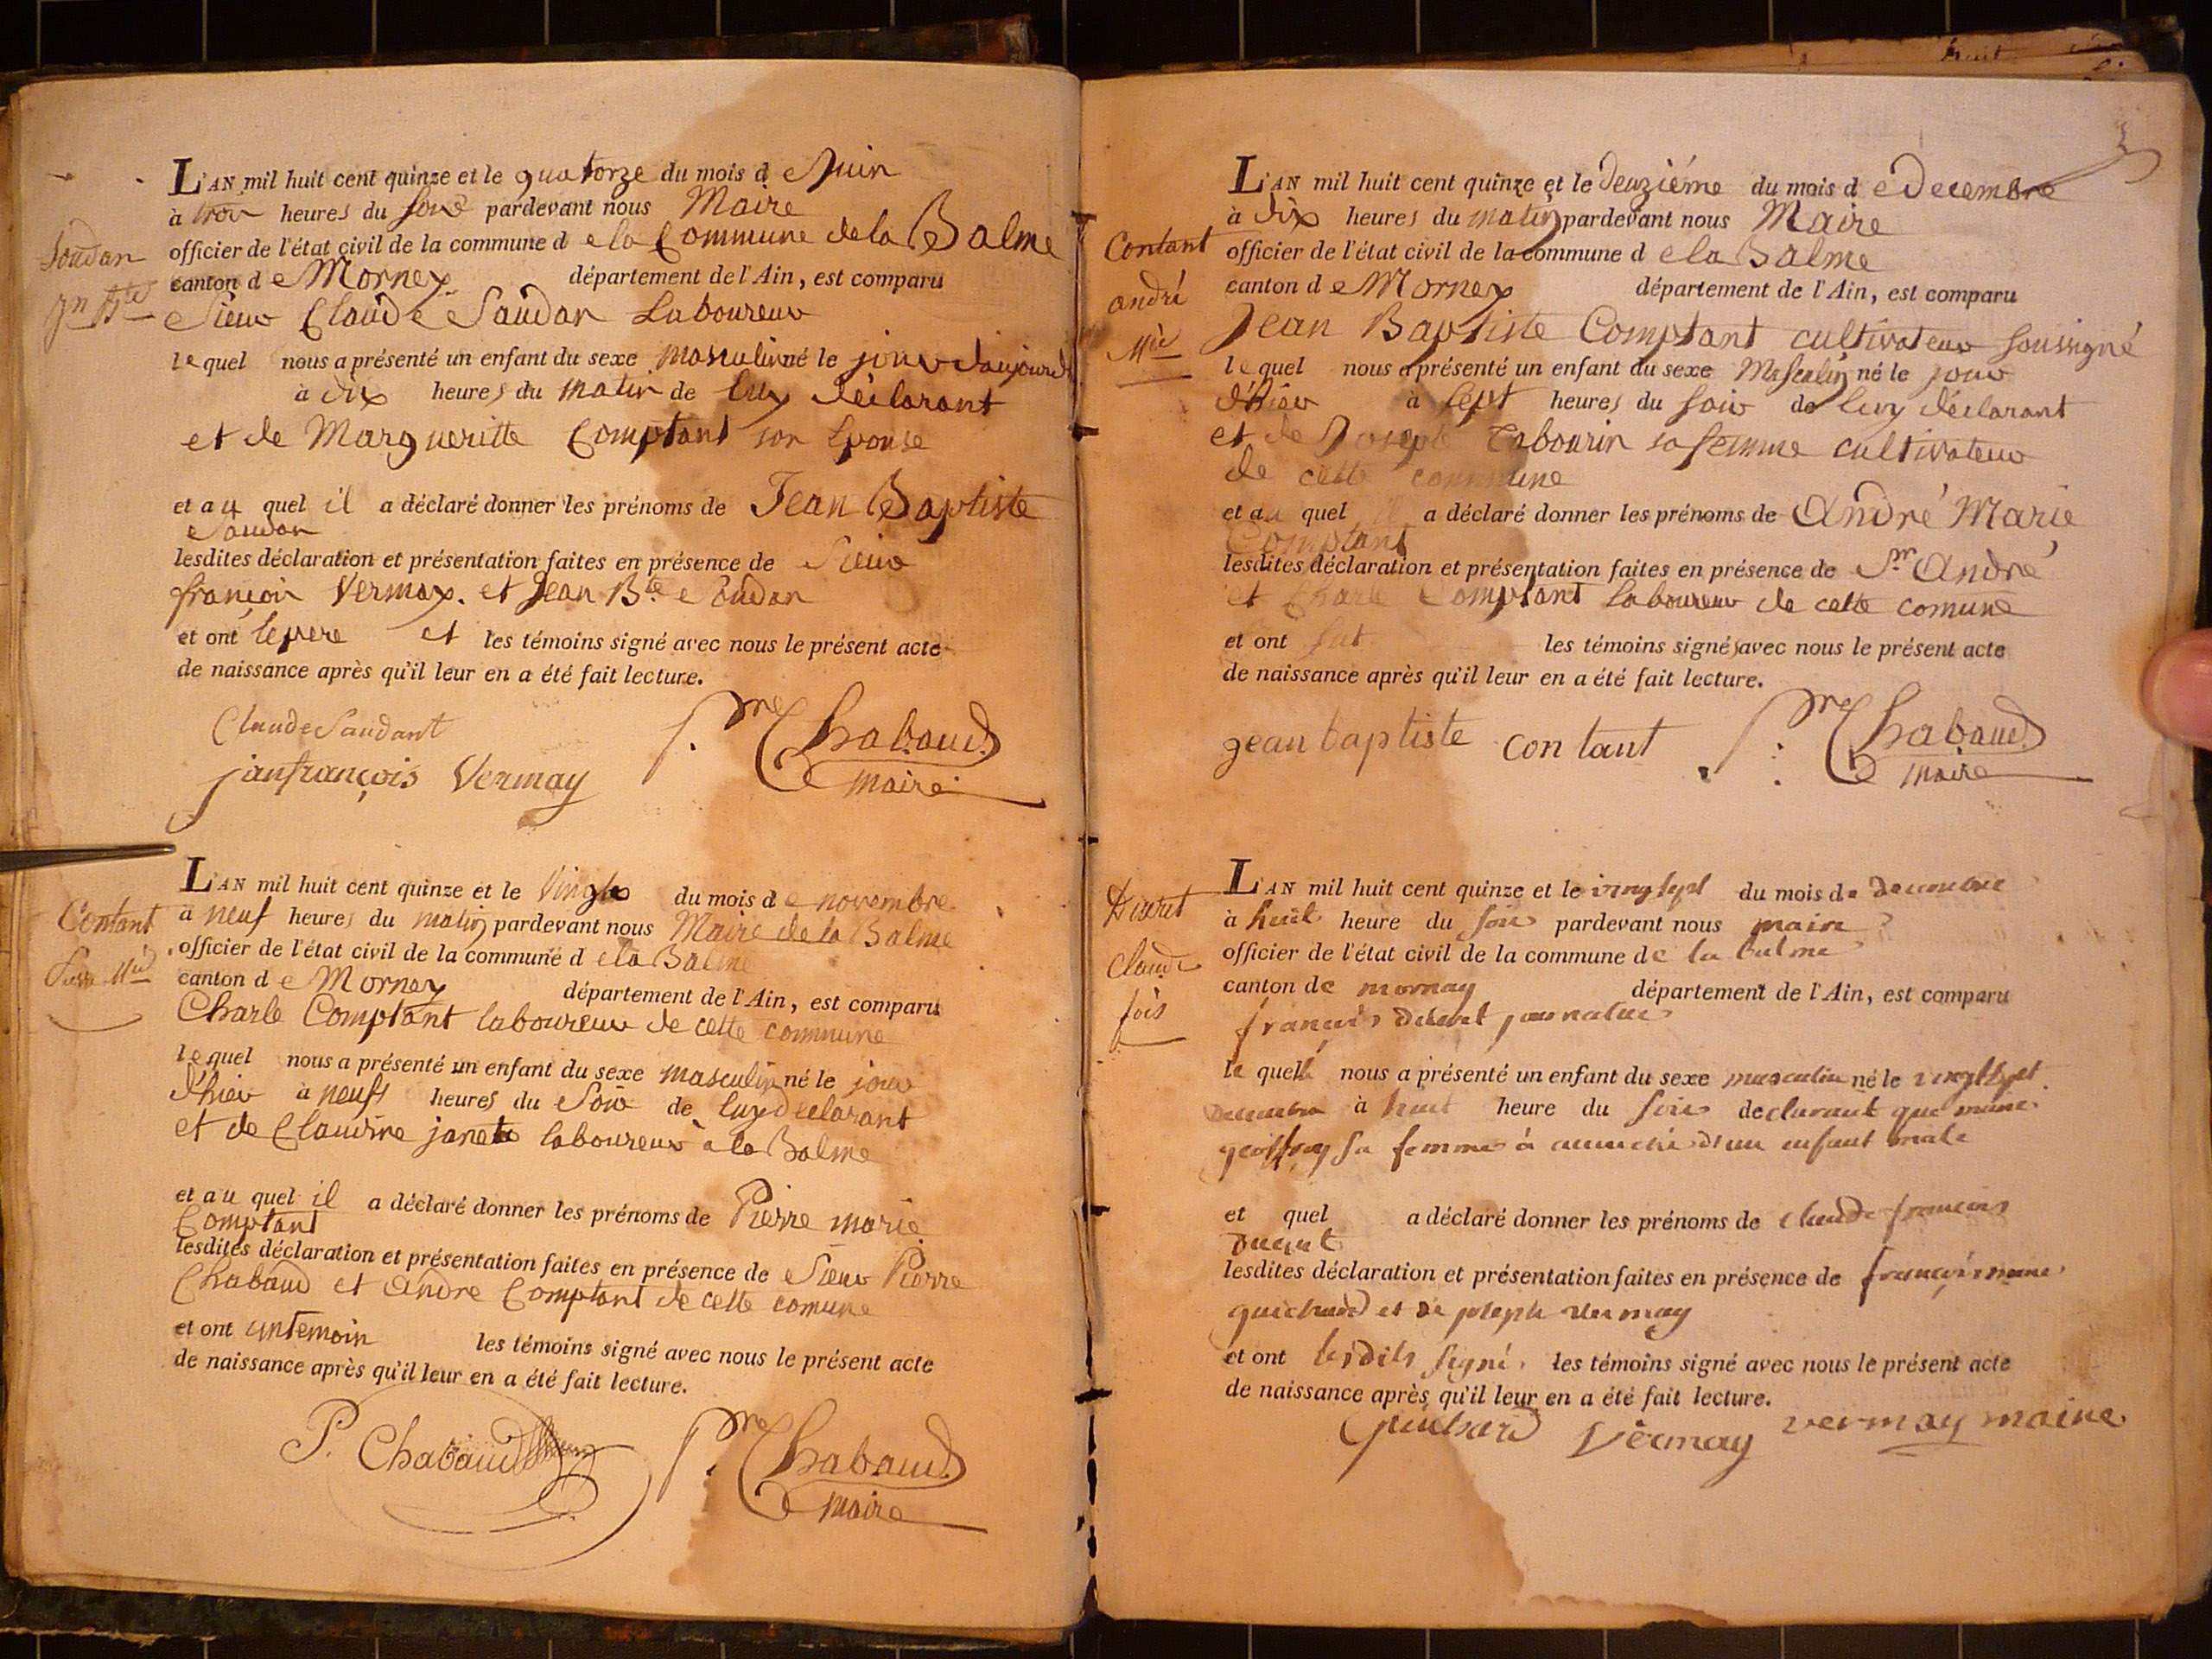 L'AN mil huit cent quinze et le quatorze du mois de Juin
à trois heures du soir pardevant nous Maire
officier de l'état civil de la commune d e la Commune de la Balme
canton d e Mornex département de l'Ain, est comparu
Sieur Claude Saudan Laboureur
le quel nous a présenté un enfant du sexe masculin né le jour d'aujourd
à dix heures du matin de luy déclarant
et de Margueritte Comptant son Epouse
et au quel il a déclaré donner les prénoms de Jean Baptiste
Soudan
lesdites déclaration et présentation faites en présence de Sieur
françois Vermay. et Jean Bte Soudan
et ont le pere et les témoins signé avec nous le présent acte
de naissance après qu'il leur en a été fait lecture.
Claude Saudant
janfrançois Vermay
Chabaud
maire
Soudan
Jn Bte
L'AN mil huit cent quinze et le Vingt du mois d e novembre
à neuf heures du matin pardevant nous Maire de la Balme
officier de l'état civil de la commune d e la Balme
canton d e Mornex département de l'Ain, est comparu
Charle Comptant laboureur de cette commune
le quel nous a présenté un enfant du sexe masculin né le jour
d'hier à neuf heures du Soir de luy declarant
et de Claudine laboureur à la Balme
et au quel il a déclaré donner les prénoms de Pierre marie
Comptant
lesdites déclaration et présentation faites en présence de Sieur Pierre
Chabaud et André Comptant de cette comune
et ont un temoin les témoins signé avec nous le présent acte
de naissance après qu'il leur en a été fait lecture.
P. Chabaud
Chabaud
maire
Contant
Mie
L'AN mil huit cent quinze et le deuziéme du mois d e Decembre
à dix heures du matin pardevant nous Maire
officier de l'état civil de la commune d e la Balme
canton d e Mornex département de l'Ain, est comparu
Jean Baptiste Comptant cultivateur soussigné
le quel nous a présenté un enfant du sexe Masculin né le jour
d'hier à sept heures du soir de luy déclarant
et de Tabourin sa femme cultivateur
de cette commune
et au quel il a déclaré donner les prénoms de André Marie
Comptant
lesdites déclaration et présentation faites en présence de Sr André
et Charle Comptant laboureur de cette comune
et ont les témoins signé avec nous le présent acte
de naissance après qu'il leur en a été fait lecture.
jean baptiste contant
Chabaud
maire
Contant
andré
Mie
L'AN mil huit cent quinze et le vingt sept du mois de decembre
à huit heure du soir pardevant nous maire
officier de l'état civil de la commune de la balme
canton de mornay département de l'Ain, est comparu
françois journalier
le quel nous a présenté un enfant du sexe masculin né le vingt sept
decembre à huit heure du soir declarant que
sa femme à d'un enfant male
et quel a déclaré donner les prénoms de claude françois
lesdites déclaration et présentation faites en présence de
guichard et de joseph vermay
et ont lesdits signé les témoins signé avec nous le présent acte
de naissance après qu'il leur en a été fait lecture.
Guichard Vermay vermay maire
Claude
fois